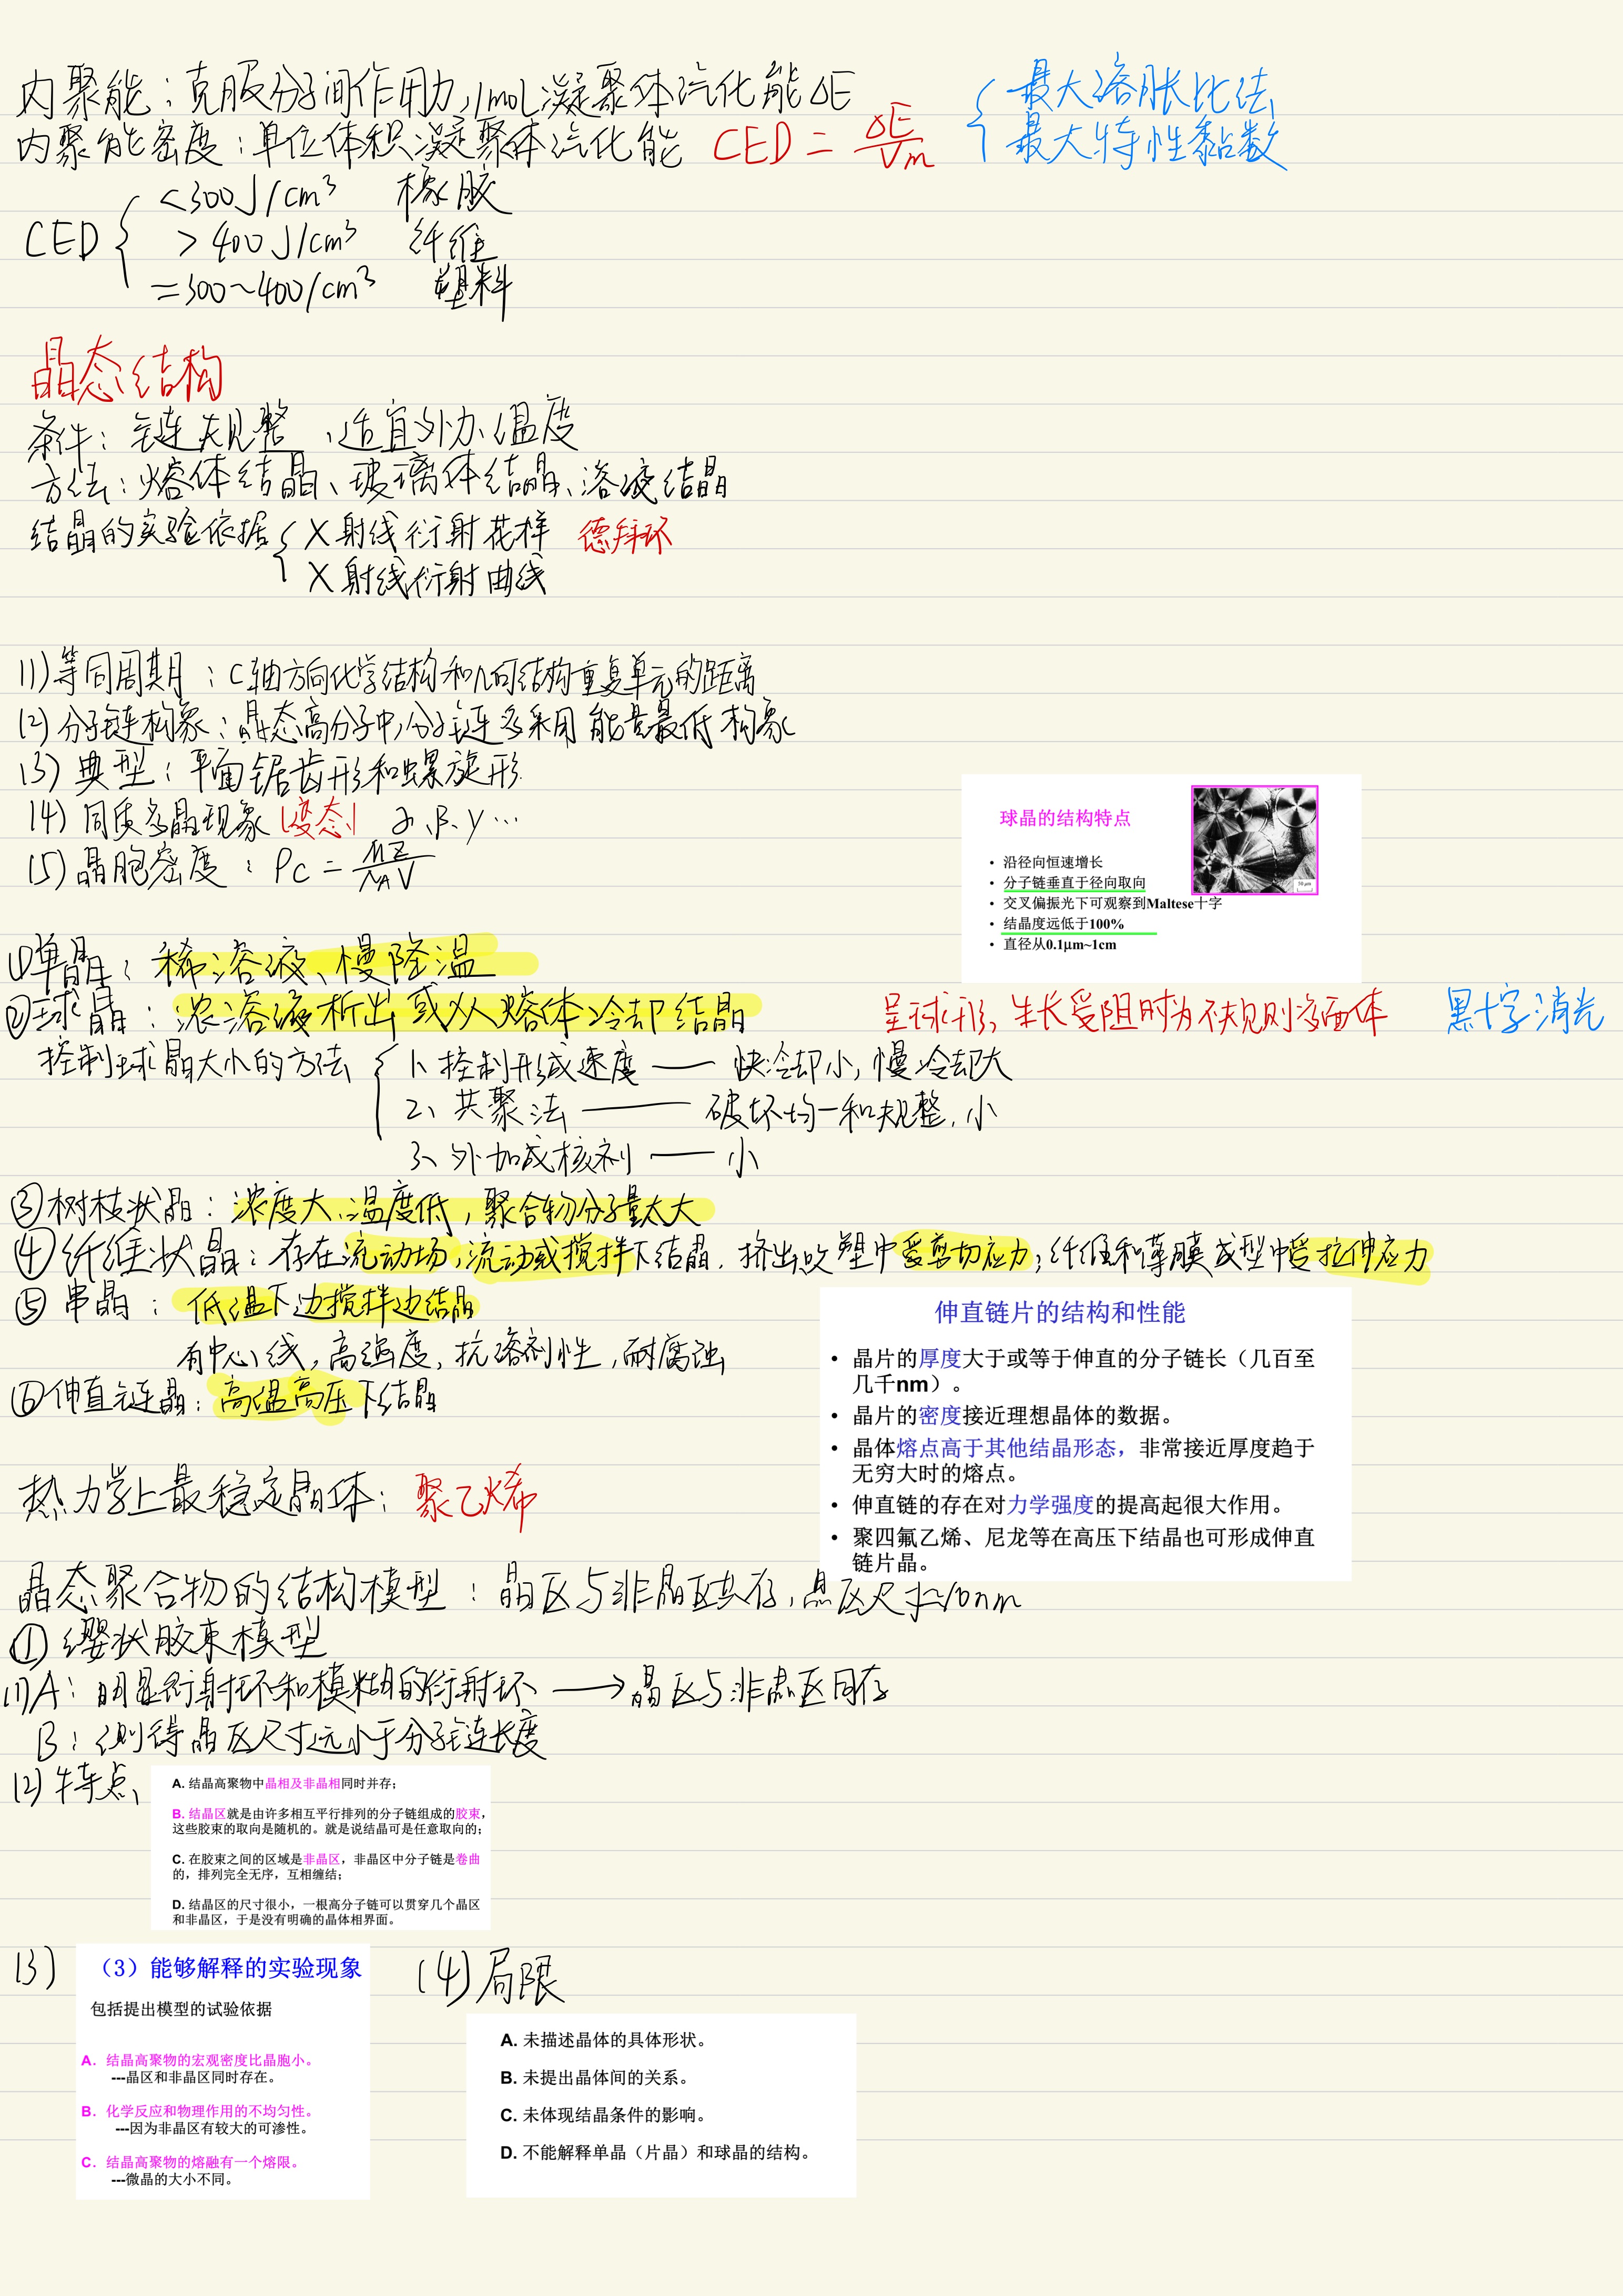 内聚能：克服分子间作用力，1mol凝聚体汽化能ΔE
内聚能密度：单位体积凝聚体汽化能 CED = ΔE/Vm
最大溶胀比法
最大特性黏数
CED
<300J/cm³ 橡胶
>400J/cm³ 纤维
=300~400/cm³ 塑料
晶态结构
条件：链规整、适宜外力、温度
方法：熔体结晶、玻璃体结晶、溶液结晶
结晶的实验依据
X射线衍射花样 德拜环
X射线衍射曲线
(1)等同周期：C轴方向化学结构和几何结构重复单元的距离
(2)分子链构象：晶态高分子中,分子链多采用能量最低构象
(3)典型：平面锯齿形和螺旋形
(4)同质多晶现象(变态) α、β、γ…
(5)晶胞密度：ρc = MZ/NAV
球晶的结构特点
• 沿径向恒速增长
• 分子链垂直于径向取向
• 交叉偏振光下可观察到Maltese十字
• 结晶度远低于100%
• 直径从0.1μm~1cm
①单晶：稀溶液、慢降温
②球晶：浓溶液析出或从熔体冷却结晶 呈球形，生长受阻时为不规则多面体 黑十字消光
控制球晶大小的方法
1、控制形成速度 —— 快冷却小，慢冷却大
2、共聚法 —— 破坏均一和规整，小
3、外加成核剂 —— 小
③树枝状晶：浓度大、温度低，聚合物分子量太大
④纤维状晶：存在流动场，流动或搅拌下结晶，挤出吹塑中受剪切应力；纤维和薄膜成型中受拉伸应力
⑤串晶：低温下边搅拌边结晶
有中心线，高强度，抗溶剂性，耐腐蚀
⑥伸直链晶：高温高压下结晶
伸直链片的结构和性能
• 晶片的厚度大于或等于伸直的分子链长（几百至
几千nm）。
• 晶片的密度接近理想晶体的数据。
• 晶体熔点高于其他结晶形态，非常接近厚度趋于
无穷大时的熔点。
• 伸直链的存在对力学强度的提高起很大作用。
• 聚四氟乙烯、尼龙等在高压下结晶也可形成伸直
链片晶。
热力学上最稳定晶体：聚乙烯
晶态聚合物的结构模型：晶区与非晶区共存，晶区尺寸~10nm
①缨状胶束模型
(1)A：明显衍射环和模糊的衍射环 → 晶区与非晶区同存
B：测得晶区尺寸远小于分子链长度
(2)特点、
A. 结晶高聚物中晶相及非晶相同时并存；
B. 结晶区就是由许多相互平行排列的分子链组成的胶束，
这些胶束的取向是随机的。就是说结晶可是任意取向的；
C. 在胶束之间的区域是非晶区，非晶区中分子链是卷曲
的，排列完全无序，互相缠结；
D. 结晶区的尺寸很小，一根高分子链可以贯穿几个晶区
和非晶区，于是没有明确的晶体相界面。
(3)
（3）能够解释的实验现象
包括提出模型的试验依据
A. 结晶高聚物的宏观密度比晶胞小。
---晶区和非晶区同时存在。
B. 化学反应和物理作用的不均匀性。
---因为非晶区有较大的可渗性。
C. 结晶高聚物的熔融有一个熔限。
---微晶的大小不同。
(4)局限
A. 未描述晶体的具体形状。
B. 未提出晶体间的关系。
C. 未体现结晶条件的影响。
D. 不能解释单晶（片晶）和球晶的结构。